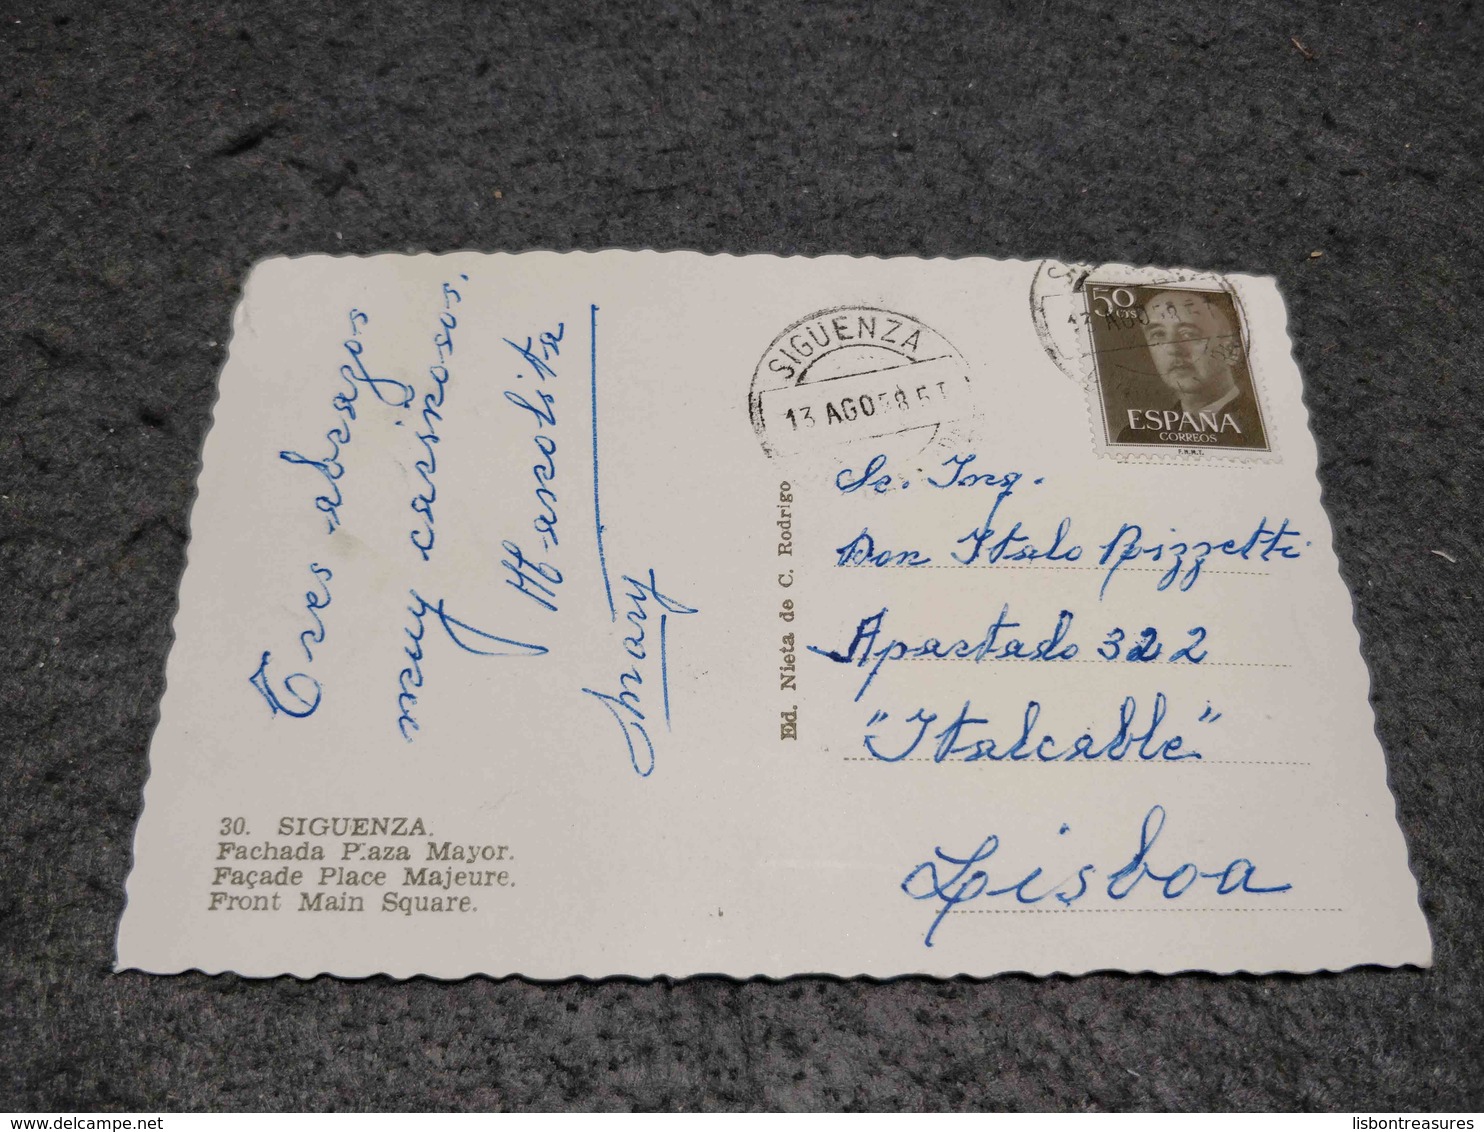 Tres abrazos
muy cariñosos.
Manolita
Mary
30. SIGUENZA.
Fachada Plaza Mayor.
Façade Place Majeure.
Front Main Square.
Ed. Nieta de C. Rodrigo
SIGUENZA
13 AGO 58 5T
13 AGO 58 5T
50 CTS
ESPAÑA
CORREOS
F.N.M.T.
Sr. Ing.
Don Italo Rizzetti
Apartado 322
"Italcable"
Lisboa
delcampe.net
lisbontreasures